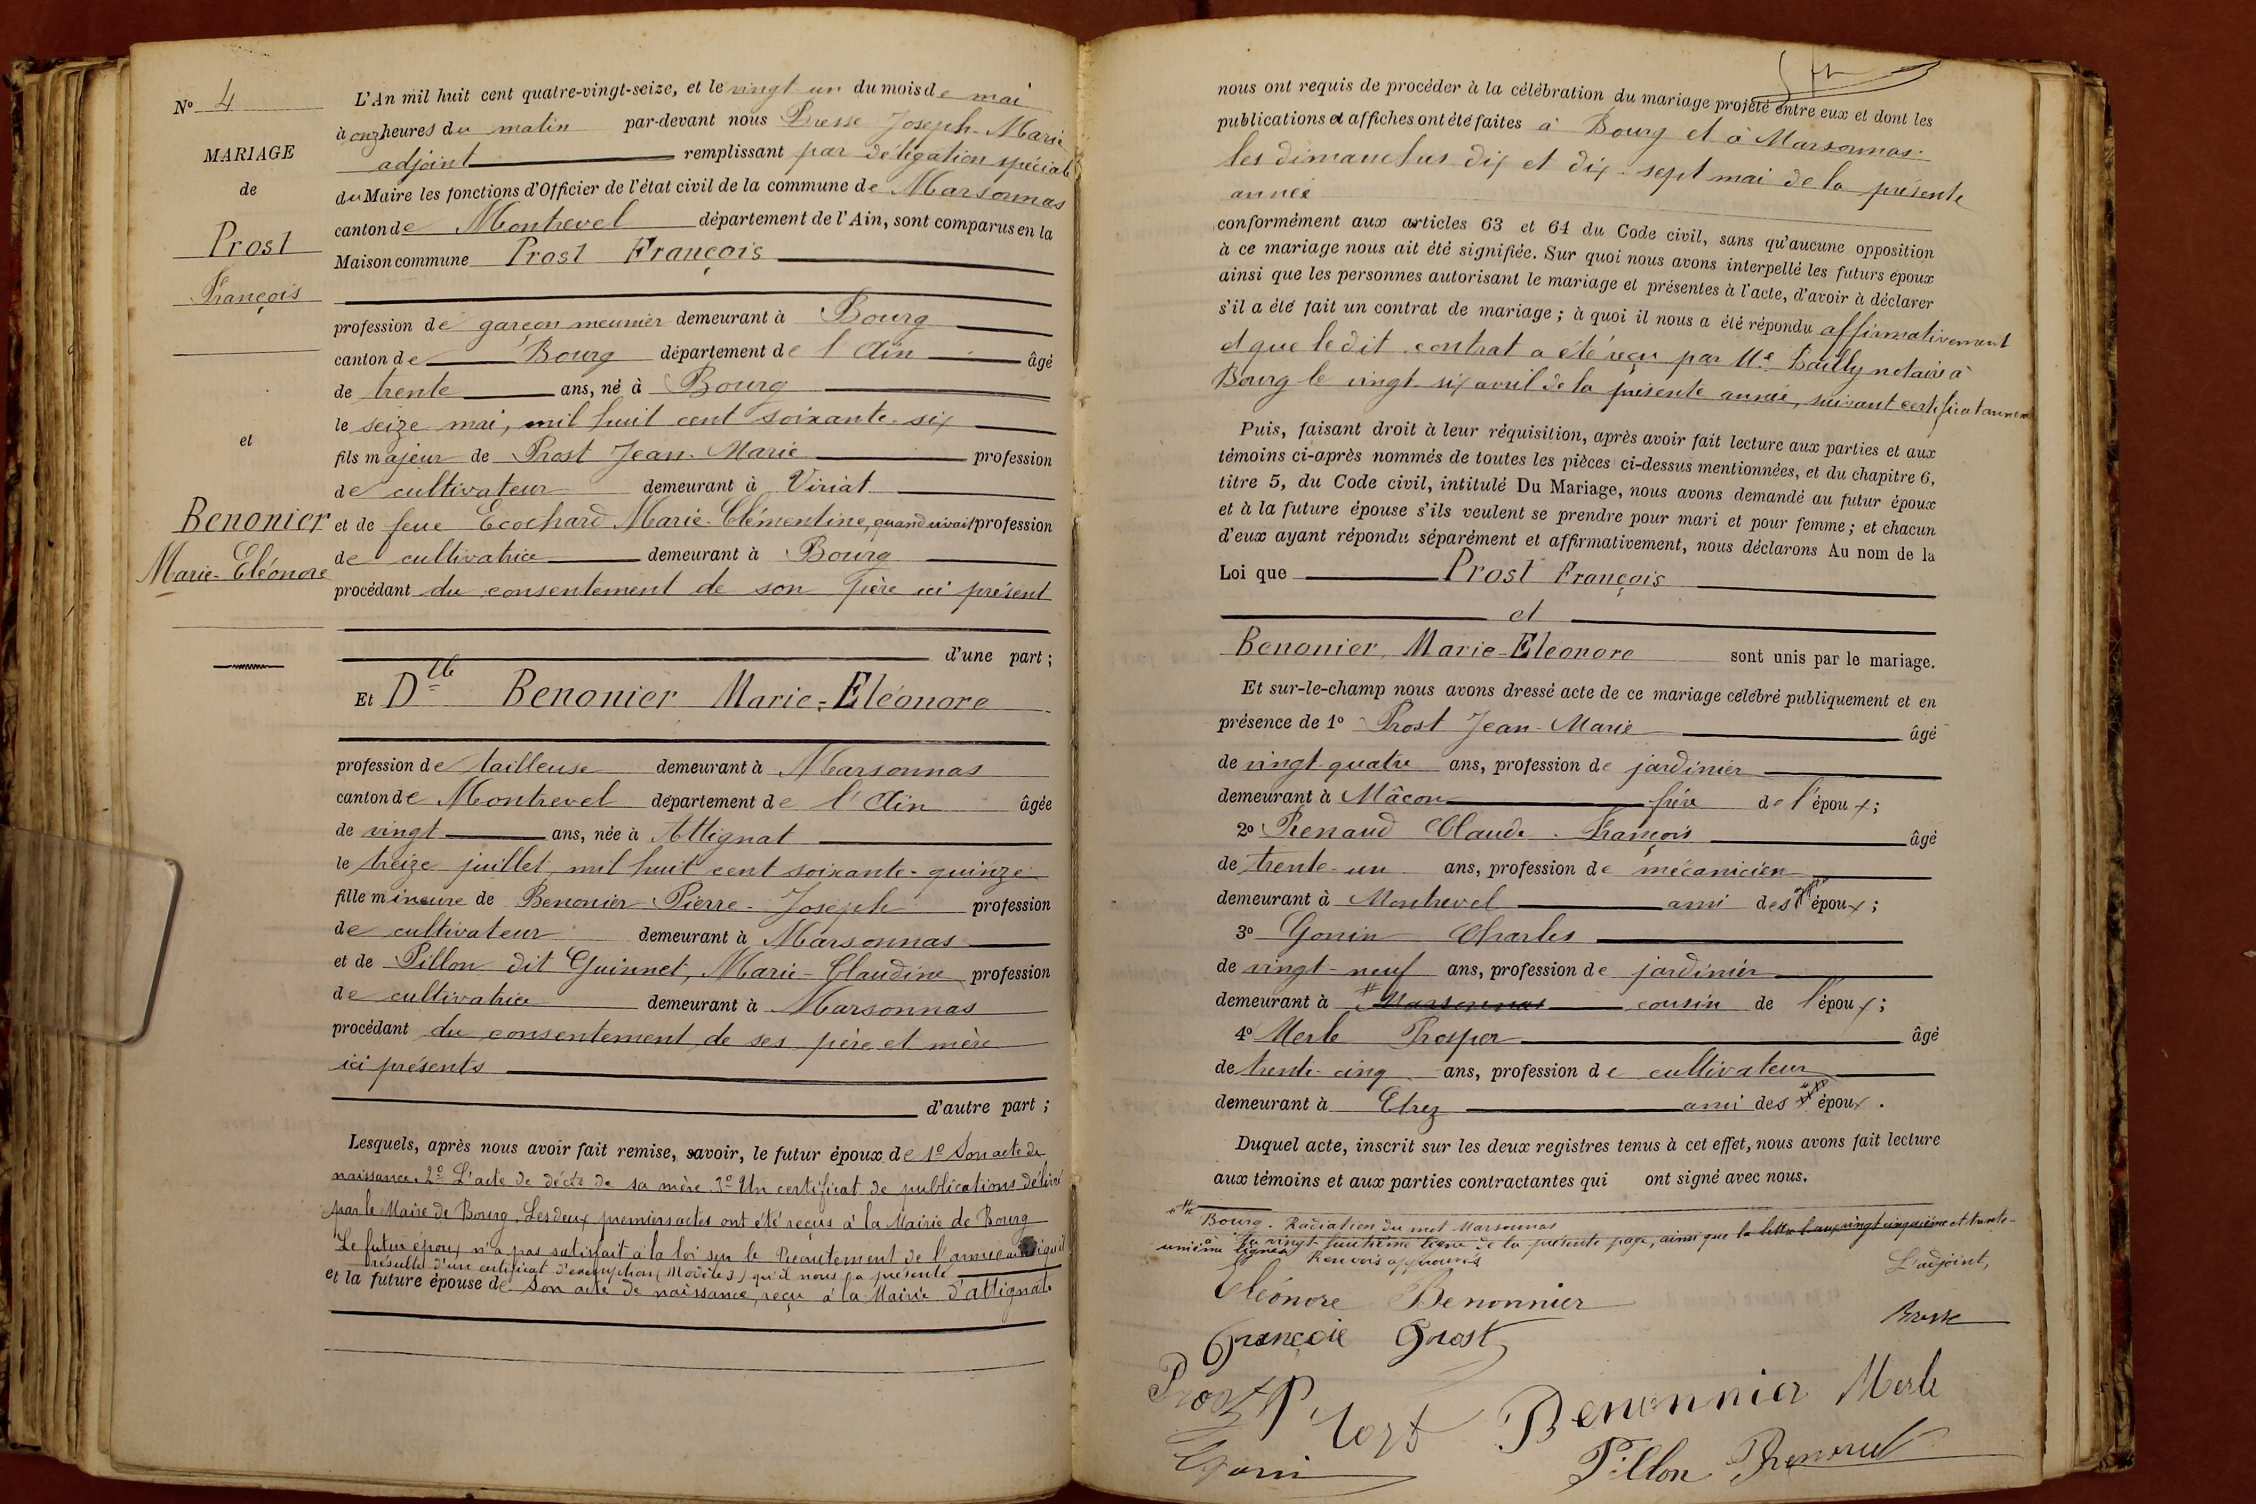 N° 4
MARIAGE
de
Prost
François
et
Benonier
Marie-Eléonore
L'An mil huit cent quatre-vingt-seize, et le vingt un du mois de mai
à onz heures du matin par-devant nous Bresse Joseph-Marie
adjoint remplissant par délégation spéciale
du Maire les fonctions d'Officier de l'état civil de la commune de Marsonnas
canton de Montrevel département de l'Ain, sont comparus en la
Maison commune Prost François
profession de garçon meunier demeurant à Bourg
canton de Bourg département de l'Ain âgé
de trente ans, né à Bourg
le seize mai, mil huit cent soixante-six
fils majeur de Prost Jean-Marie profession
de cultivateur demeurant à Viriat
et de feue Ecochard Marie-Clémentine, quand vivait profession
de cultivatrice demeurant à Bourg
procédant du consentement de son père ici présent
d'une part ;
Et Dlle Benonier Marie-Eléonore
profession de tailleuse demeurant à Marsonnas
canton de Montrevel département de l'Ain âgée
de vingt ans, née à Attignat
le treize juillet, mil huit cent soixante-quinze
fille mineure de Benonier Pierre-Joseph profession
de cultivateur demeurant à Marsonnas
et de Pillon dit Guinnet, Marie-Claudine profession
de cultivatrice demeurant à Marsonnas
procédant du consentement de ses père et mère
ici présents
d'autre part ;
Lesquels, après nous avoir fait remise, savoir, le futur époux de 1° Son acte de
naissance. 2° L'acte de décès de sa mère. 3° Un certificat de publications délivré
par le Maire de Bourg. Les deux premiers actes ont été reçus à la Mairie de Bourg
Le futur époux n'a pas satisfait à la loi sur le Recrutement de l'armée ainsi qu'il
résulte d'un certificat d'exemption (Modèle 3) qu'il nous a présenté
et la future épouse de Son acte de naissance, reçu à la Mairie d'attignat
nous ont requis de procéder à la célébration du mariage projeté entre eux et dont les
publications et affiches ont été faites à Bourg et à Marsonnas
les dimanches dix et dix-sept mai de la présente
année
conformément aux articles 63 et 64 du Code civil, sans qu'aucune opposition
à ce mariage nous ait été signifiée. Sur quoi nous avons interpellé les futurs époux
ainsi que les personnes autorisant le mariage et présentes à l'acte, d'avoir à déclarer
s'il a été fait un contrat de mariage ; à quoi il nous a été répondu affirmativement
et que le dit contrat a été reçu par Me Bailly notaire à
Bourg le vingt-six avril de la présente année, suivant certificat annexé
Puis, faisant droit à leur réquisition, après avoir fait lecture aux parties et aux
témoins ci-après nommés de toutes les pièces ci-dessus mentionnées, et du chapitre 6,
titre 5, du Code civil, intitulé Du Mariage, nous avons demandé au futur époux
et à la future épouse s'ils veulent se prendre pour mari et pour femme ; et chacun
d'eux ayant répondu séparément et affirmativement, nous déclarons Au nom de la
Loi que Prost François
et
Benonier Marie-Eléonore sont unis par le mariage.
Et sur-le-champ nous avons dressé acte de ce mariage célébré publiquement et en
présence de 1° Prost Jean-Marie âgé
de vingt-quatre ans, profession de jardinier
demeurant à Mâcon frère de l'époux ;
2° Renaud Claude-François âgé
de trente-un ans, profession de mécanicien
demeurant à Montrevel ami des époux ;
3° Gonin Charles
de vingt-neuf ans, profession de jardinier
demeurant à Marsonnas cousin de l'époux ;
4° Merle Prosper âgé
de trente-cinq ans, profession de cultivateur
demeurant à Etrez ami des époux.
Duquel acte, inscrit sur les deux registres tenus à cet effet, nous avons fait lecture
aux témoins et aux parties contractantes qui ont signé avec nous.
Bourg. Radiation du mot Marsonnas
à la vingt-huitième ligne de la présente page, ainsi que la lettre l aux vingt cinquième et trente-
unième lignes
Renvois approuvés
L'adjoint,
Eléonore Benonnier
Bresse
François Prost
Prost
Benonnier Merle
Gonin
Pillon Renaud